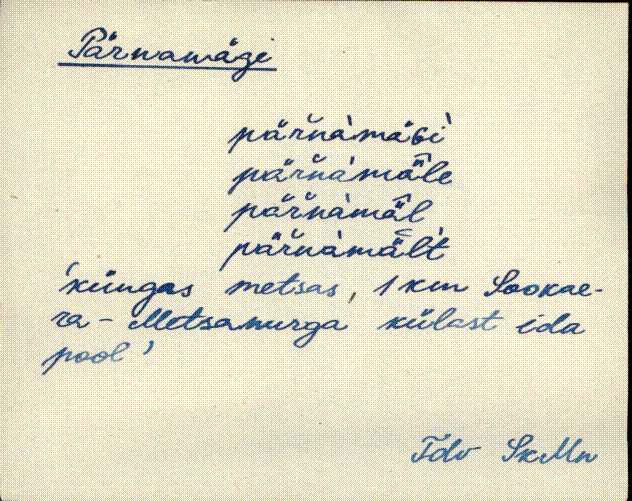 Pärnamägi
pär̆nàmäɢì
pär̆nàmä̂le
pär̆nàmä̂l
pär̆nàmä̂lt
'küngas metsas, 1 km Sookae-
ra-Metsanurga külast ida
pool'
Tdv SkMn